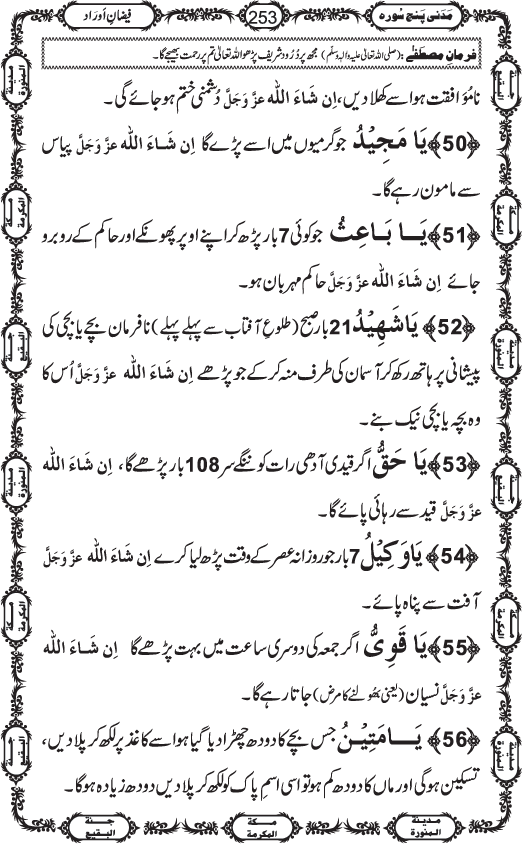 مَدَنی پنج سورہ
253
فیضانِ اَوراد
فرمانِ مصطفےٰ: (صلی اللہ تعالیٰ علیہ والہٖ وسلّم) مجھ پر دُرُود شریف پڑھو اللہ تعالیٰ تم پر رحمت بھیجے گا۔
نامُوَافقت ہو اسے کھلا دیں، اِن شَاءَ اللہ عزَّوَجَلَّ دُشمنی ختم ہو جائے گی۔
﴿50﴾ یَا مَجِیْدُ جو گرمیوں میں اسے پڑے گا اِن شَاءَ اللہ عزَّوَجَلَّ پیاس
سے مامون رہے گا۔
﴿51﴾ یَا بَاعِثُ جو کوئی 7 بار پڑھ کر اپنے اوپر پھونکے اور حاکم کے روبرو
جائے اِن شَاءَ اللہ عزَّوَجَلَّ حاکم مہربان ہو۔
﴿52﴾ یَا شَھِیْدُ 21 بار صبح (طلوعِ آفتاب سے پہلے پہلے) نافرمان بچے یا بچی کی
پیشانی پر ہاتھ رکھ کر آسمان کی طرف منہ کر کے جو پڑھے اِن شَاءَ اللہ عزَّوَجَلَّ اُس کا
وہ بچہ یا بچی نیک بنے۔
﴿53﴾ یَا حَقُّ اگر قیدی آدھی رات کو ننگے سر 108 بار پڑھے گا، اِن شَاءَ اللہ
عزَّوَجَلَّ قید سے رہائی پائے گا۔
﴿54﴾ یَا وَکِیْلُ 7 بار جو روزانہ عصر کے وقت پڑھ لیا کرے اِن شَاءَ اللہ عزَّوَجَلَّ
آفت سے پناہ پائے۔
﴿55﴾ یَا قَوِیُّ اگر جمعہ کی دوسری ساعت میں بہت پڑھے گا اِن شَاءَ اللہ
عزَّوَجَلَّ نسیان (یعنی بھولنے کا مرض) جاتا رہے گا۔
﴿56﴾ یَا مَتِیْنُ جس بچے کا دودھ چھڑا دیا گیا ہو اسے کاغذ پر لکھ کر پلا دیں،
تسکین ہوگی اور ماں کا دودھ کم ہو تو اسی اسمِ پاک کو لکھ کر پلا دیں دودھ زیادہ ہوگا۔
مدینة المنورة
مکة المکرمة
جنة البقیع
مدینة المنورة
مکة المکرمة
جنة البقیع
جنة البقیع
مکة المکرمة
مدینة المنورة
جنة البقیع
مکة المکرمة
مدینة المنورة
مدینة المنورة
مکة المکرمة
جنة البقیع